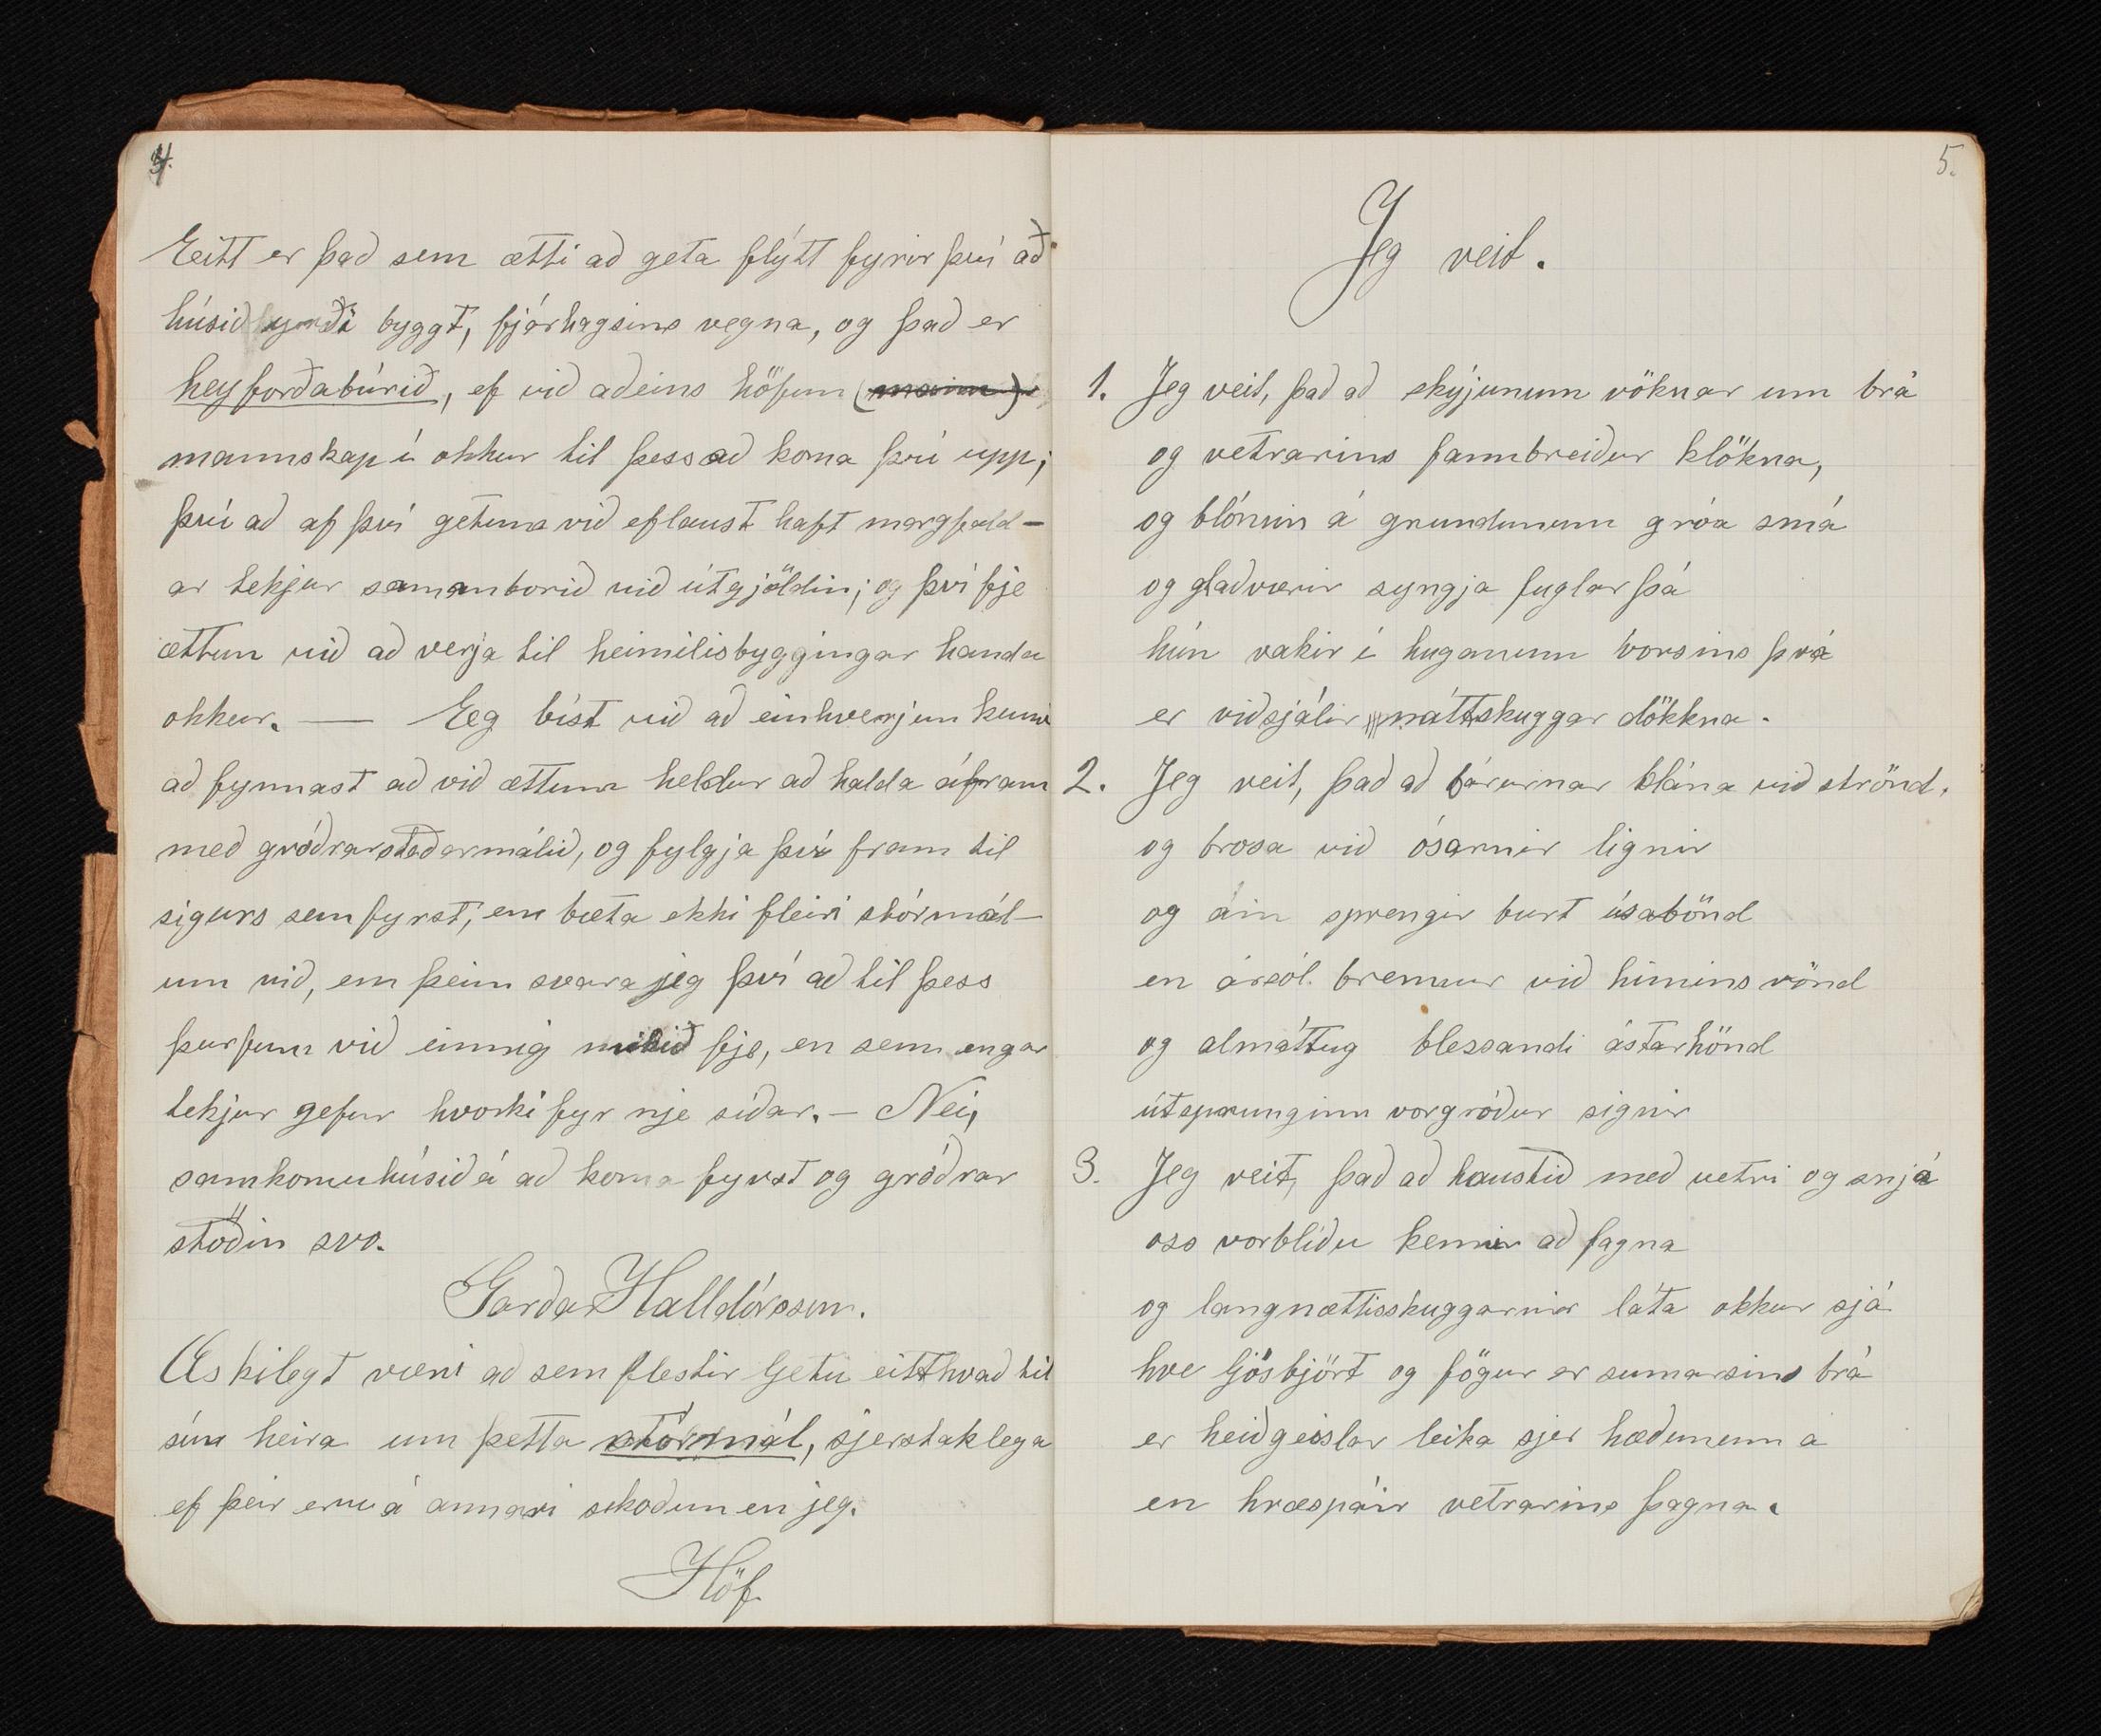 4.
Eitt er það sem ætti að geta flýtt fyrir því að
húsið yrði byggt, fjárhagsins vegna, og það er
heyforðabúrið, ef við aðeins höfum
mannskap í okkur til þess að koma því upp;
því að af því getum við eflaust haft margfald-
ar tekjur samanborið við útgjöldin; og því fje
ættum við að verja til heimilisbyggingar handa
okkur. — Eg bíst við að einhverjum kuni
að fynnast að við ættum heldur að halda áfram
með gróðrarstöðarmálið, og fylgja því fram til
sigurs sem fyrst, en bæta ekki fleiri stórmál-
um við, en þeim svara jeg því að til þess
þurfum við einnig mikið fje, en sem engar
tekjur gefur hvorki fyr nje síðar. — Nei,
samkomuhúsið á að koma fyrst og gróðrar
stöðin svo.
Garðar Halldórsson.
Æskilegt væri að sem flestir ljetu eitthvað til
sín heira um þetta stórmál, sjerstaklega
ef þeir eru á annari skoðun en jeg.
Höf.
5.
Jeg veit.
1. Jeg veit, það að skýjunum vöknar um brá
og vetrarins fannbreiður klökna,
og blómin á grundunum gróa smá
og glaðværir syngja fuglar þá
hún vakir í huganum vorsins þrá
er viðsjálir náttskuggar dökkna.
2. Jeg veit, það að bárurnar blána við strönd,
og brosa við ósarnir lignir
og áin sprengir burt ísabönd
en ársól brennur við himins rönd
og almáttug blessandi ástarhönd
útsprunginn vorgróður signir
3. Jeg veit, það að haustið með vetri og snjá
oss vorblíðu kennir að fagna
og langnættisskuggarnir láta okkur sjá
hve ljósbjört og fögur er sumarsins brá
er heiðgeislar leika sjer hæðunum á
en hræspáir vetrarins þagna.